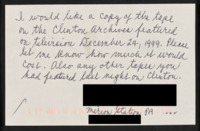 I would like a copy of the tape
on the Clinton Archives featured
on television December 24, 1999. Please
let me know how much it would
cost. Also any other tapes you
had featured last night on Clinton.
Merion Station PA